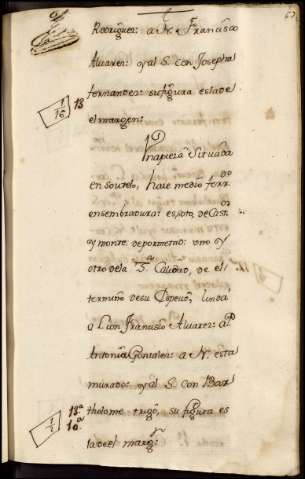 Rodriguez: a N. Francisco
Alvarez: y al S. con Josepha
fernandez: su figura esta de el
el margen:
1/16 13
1
Una pieza Situada
en soutelo, haze medio ferrdo
en sembradura: es soto de Castos
y monte de por metno: uno y
otro de la 3.a Calidad, de el
termino de su Especie, linda
a L. con Francisco Alvarez: a P.
Antonia Gonzalez: a N. esta
murado: y al S. con Bar
tholome trigo, su figura es
ta de el margn
1/2 18a 10a